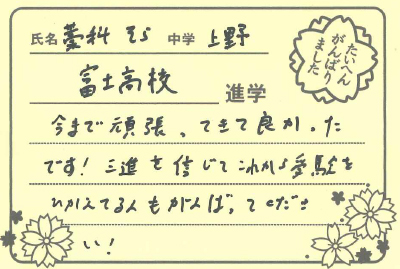 氏名 蓼科 そら 中学 上野
富士高校 進学
たいへん
がんばり
ました
今まで頑張ってきて良かった
です!三進を信じてこれから受験を
ひかえてる人もがんばってくださ
い!